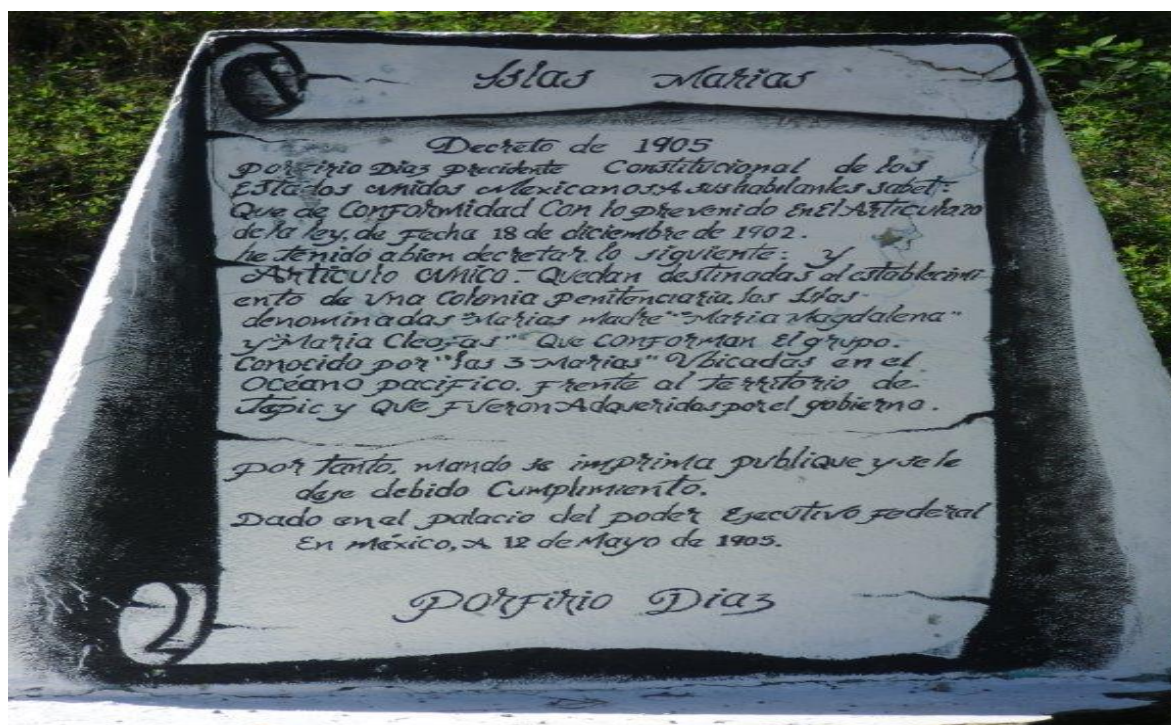 Islas Marias
Decreto de 1905
Porfirio Diaz Precidente Constitucional de los
Estados unidos Mexicanos A sus habitantes sabet:
Que de Conformidad Con lo prevenido En El Articulo 20
de la ley, de Fecha 18 de diciembre de 1902.
he Tenido abien decretar lo siguiente: y
Articulo unico - Quedan destinadas al establecimi
ento de una Colonia penitenciaria, las Islas
denominadas "Marias madre" "Maria Magdalena"
y "Maria Cleofas" Que Conforman El grupo.
Conocido por "las 3 Marias" Ubicadas en el
Océano pacifico. Frente al Territorio de
Tepic y Que Fueron Adqueridas por el gobierno.
Por Tanto, mando se imprima publique y se le
dese debido Cumplimiento.
Dado en el palacio del poder Ejecutivo Federal
En méxico, A 12 de Mayo de 1905.
Porfirio Diaz